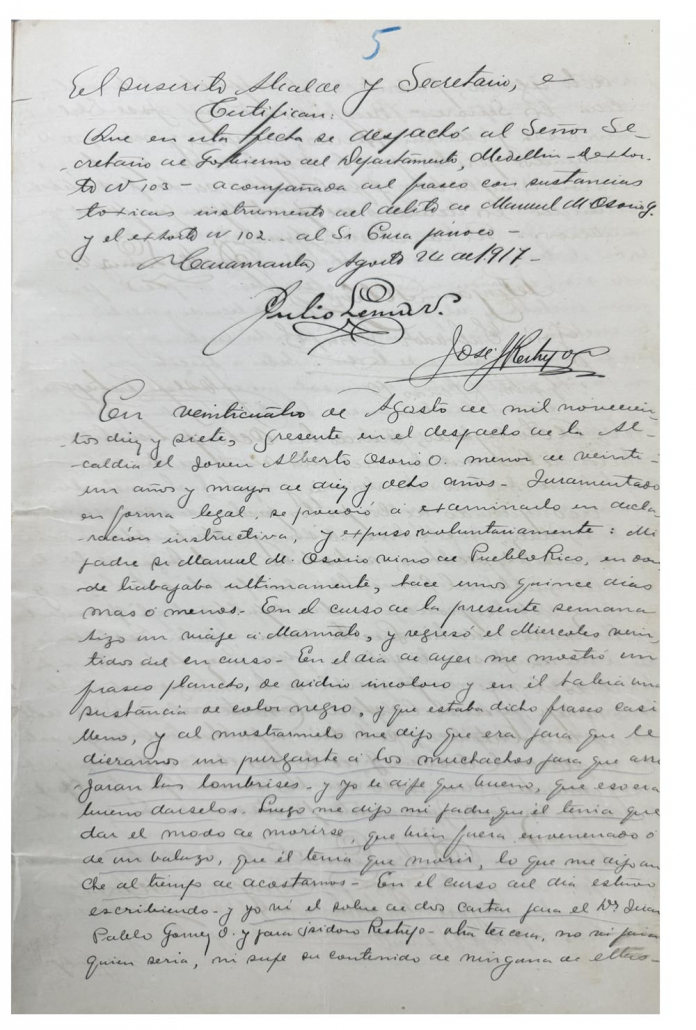 5
El suscrito Alcalde y Secretario, e
Certifican:
Que en esta fecha se despachó al Señor Se-
cretario de Gobierno del Departamento, Medellin - exhor-
to Nº 103 - acompañada del frasco con sustancias
toxicas instrumento del delito de Manuel M. Osorio G.
y el exhorto Nº 102 al Sr Cura párroco -
Caramanta, Agosto 24 de 1917 -
Julio Lema V.
José J Restrepo
En veinticuatro de Agosto de mil novecien-
tos diez y siete, presente en el despacho de la Al-
caldía el Joven Alberto Osorio O. menor de veinti-
un años y mayor de diez y ocho años - Juramentado
en forma legal, se procedió a examinarlo en decla-
ración instructiva, y expuso voluntariamente: Mi
padre Sr Manuel M. Osorio vino de Pueblo Rico, en don
de trabajaba ultimamente, hace unos quince dias
mas ó menos - En el curso de la presente semana
hizo un viaje a Marmato, y regresó el Miercoles vein-
tidos del en curso - En el día de ayer me mostró un
frasco plancho, de vidrio incoloro y en él había una
sustancia de color negro, y que estaba dicho frasco casi
lleno, y al mostrarmelo me dijo que era para que le
dieramos un purgante a los muchachos para que arro
jaran las lombrises, y yo le dije que bueno, que eso era
bueno darselos. Luego me dijo mi padre que él tenia que
dar el modo de morirse, que bien fuera envenenado ó
de un balazo, que él tenia que morir, lo que me dijo ano
che al tiempo de acostarnos - En el curso del día estuvo
escribiendo - y yo ví el sobre de dos cartas para el Dr Juan
Pablo Gomez O. y para Isidoro Restrepo - otra tercera, no vi para
quien seria, ni supe su contenido de ninguna de ellas -